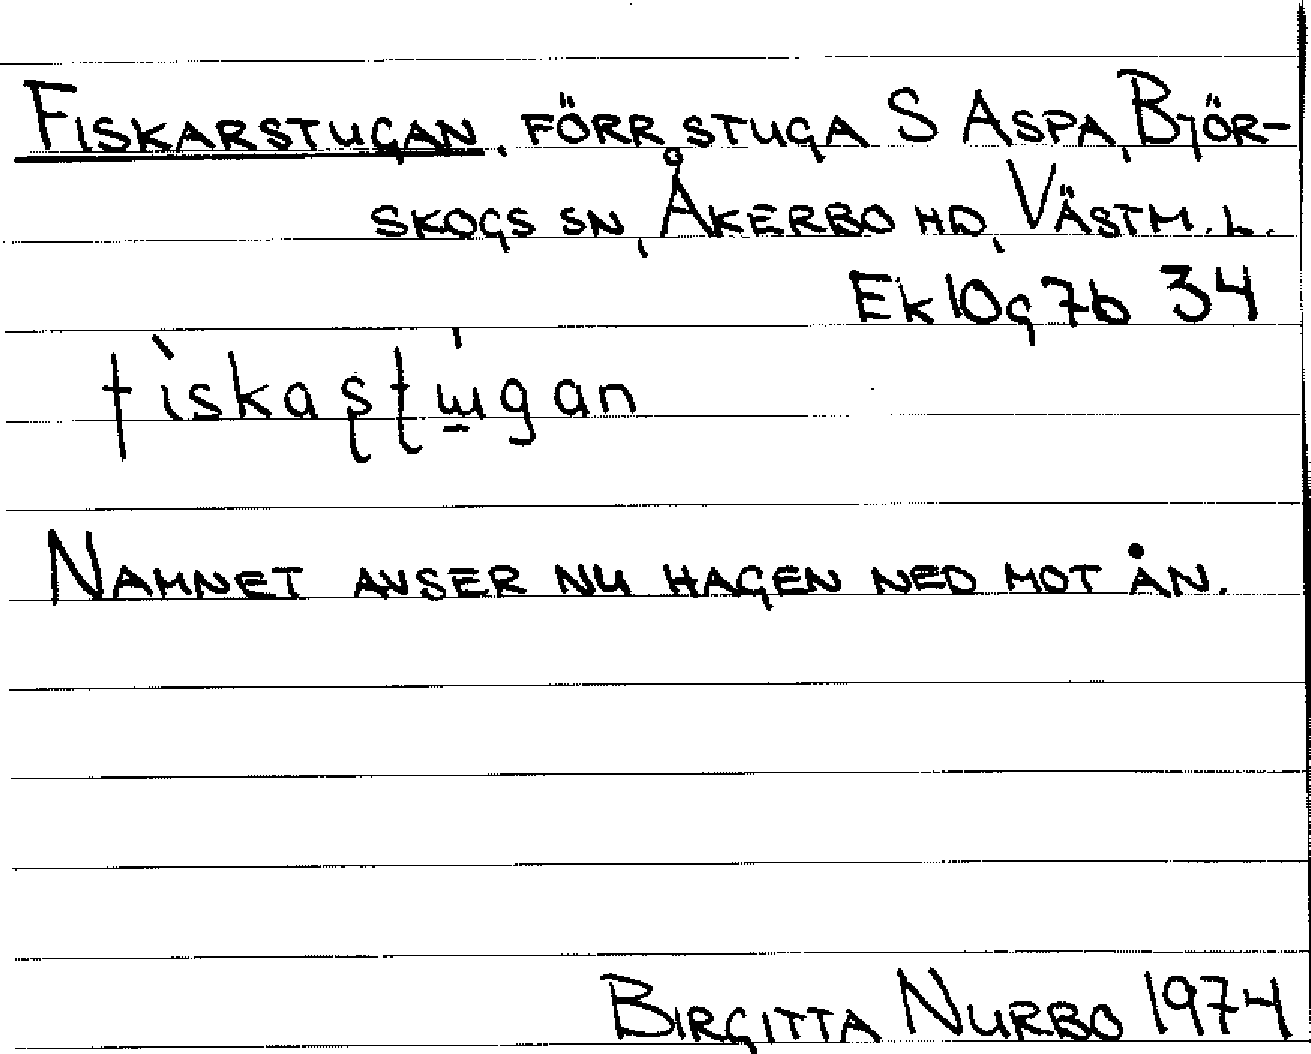 FISKARSTUGAN, FÖRR STUGA S ASPA, BJÖR-
SKOGS SN, ÅKERBO HD, VÄSTM. L.
Ek 10g 7b 34
fìskaʂʈɯ̱́gan
NAMNET AVSER NU HAGEN NED MOT ÅN.
BIRGITTA NURBO 1974